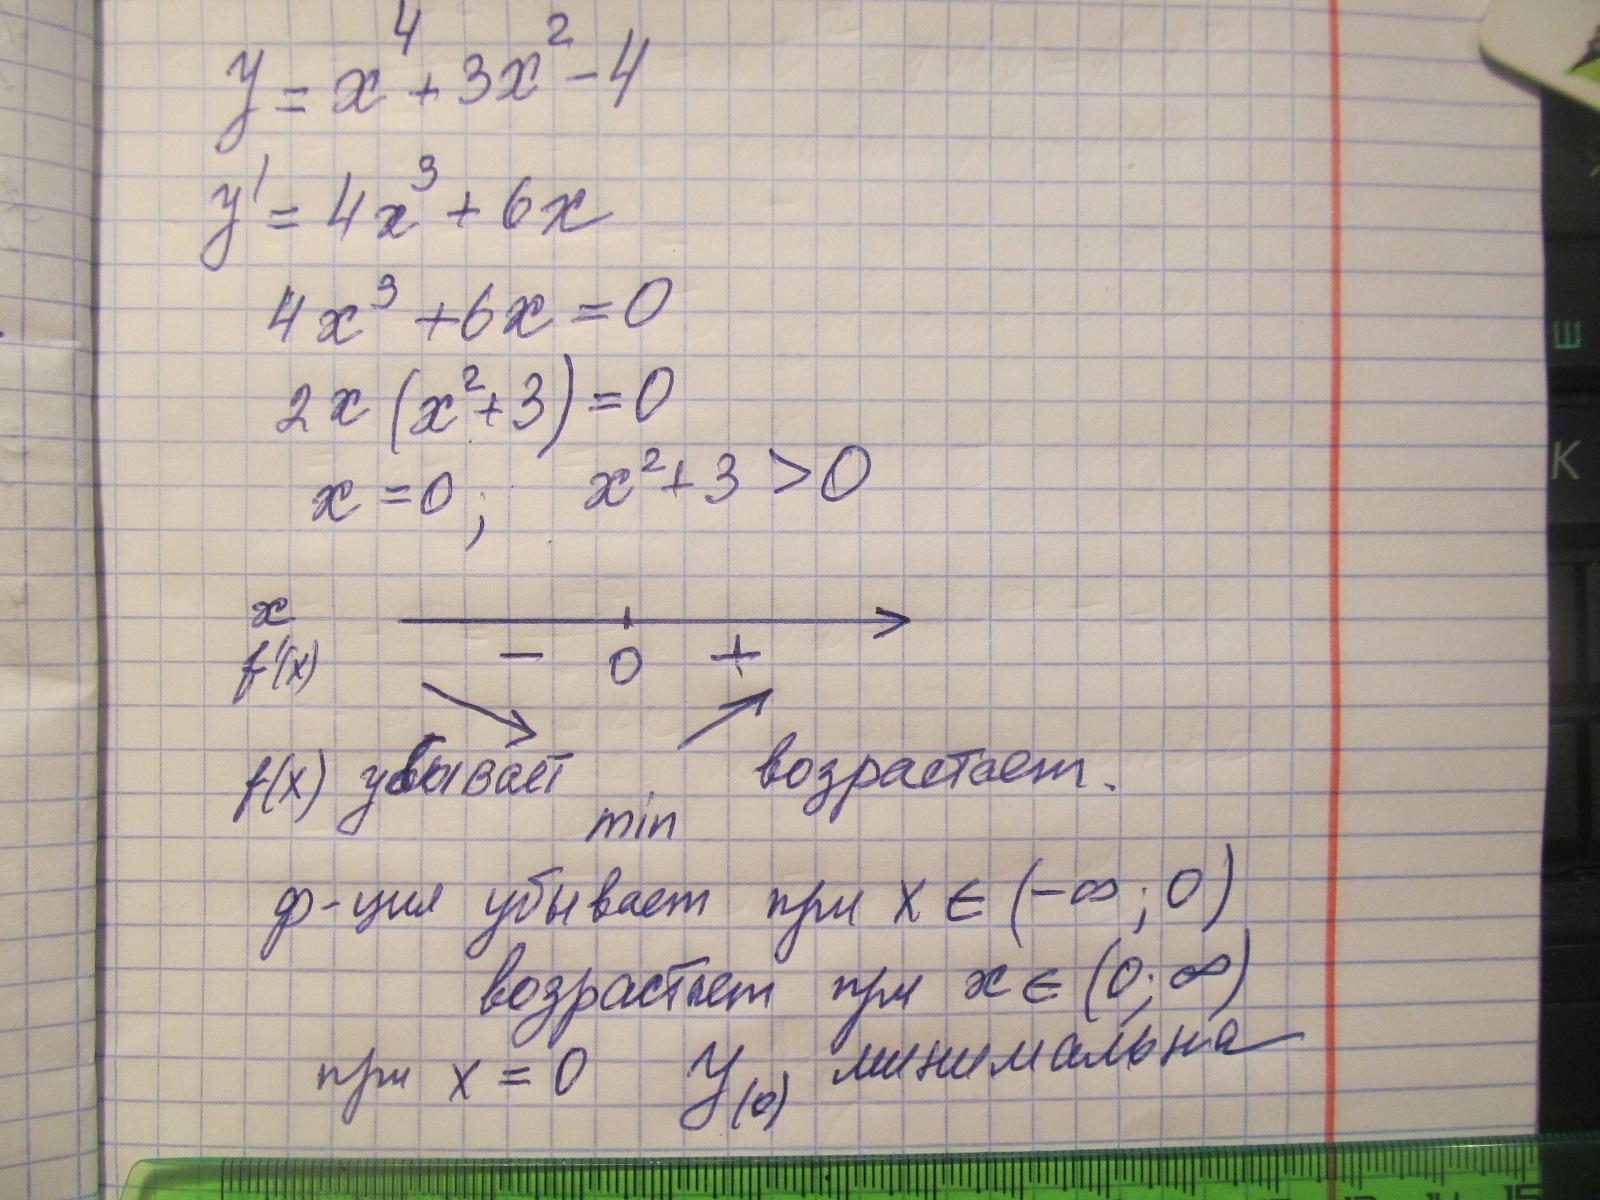 y = x⁴ + 3x² - 4
y' = 4x³ + 6x
4x³ + 6x = 0
2x (x² + 3) = 0
x = 0 ; x² + 3 > 0
x
f'(x) - 0 +
f(x) убывает возрастает.
min
ф-ция убывает при x ∈ (-∞ ; 0)
возрастает при x ∈ (0; ∞)
при x = 0 y(0) минимальна
Ш
К
15